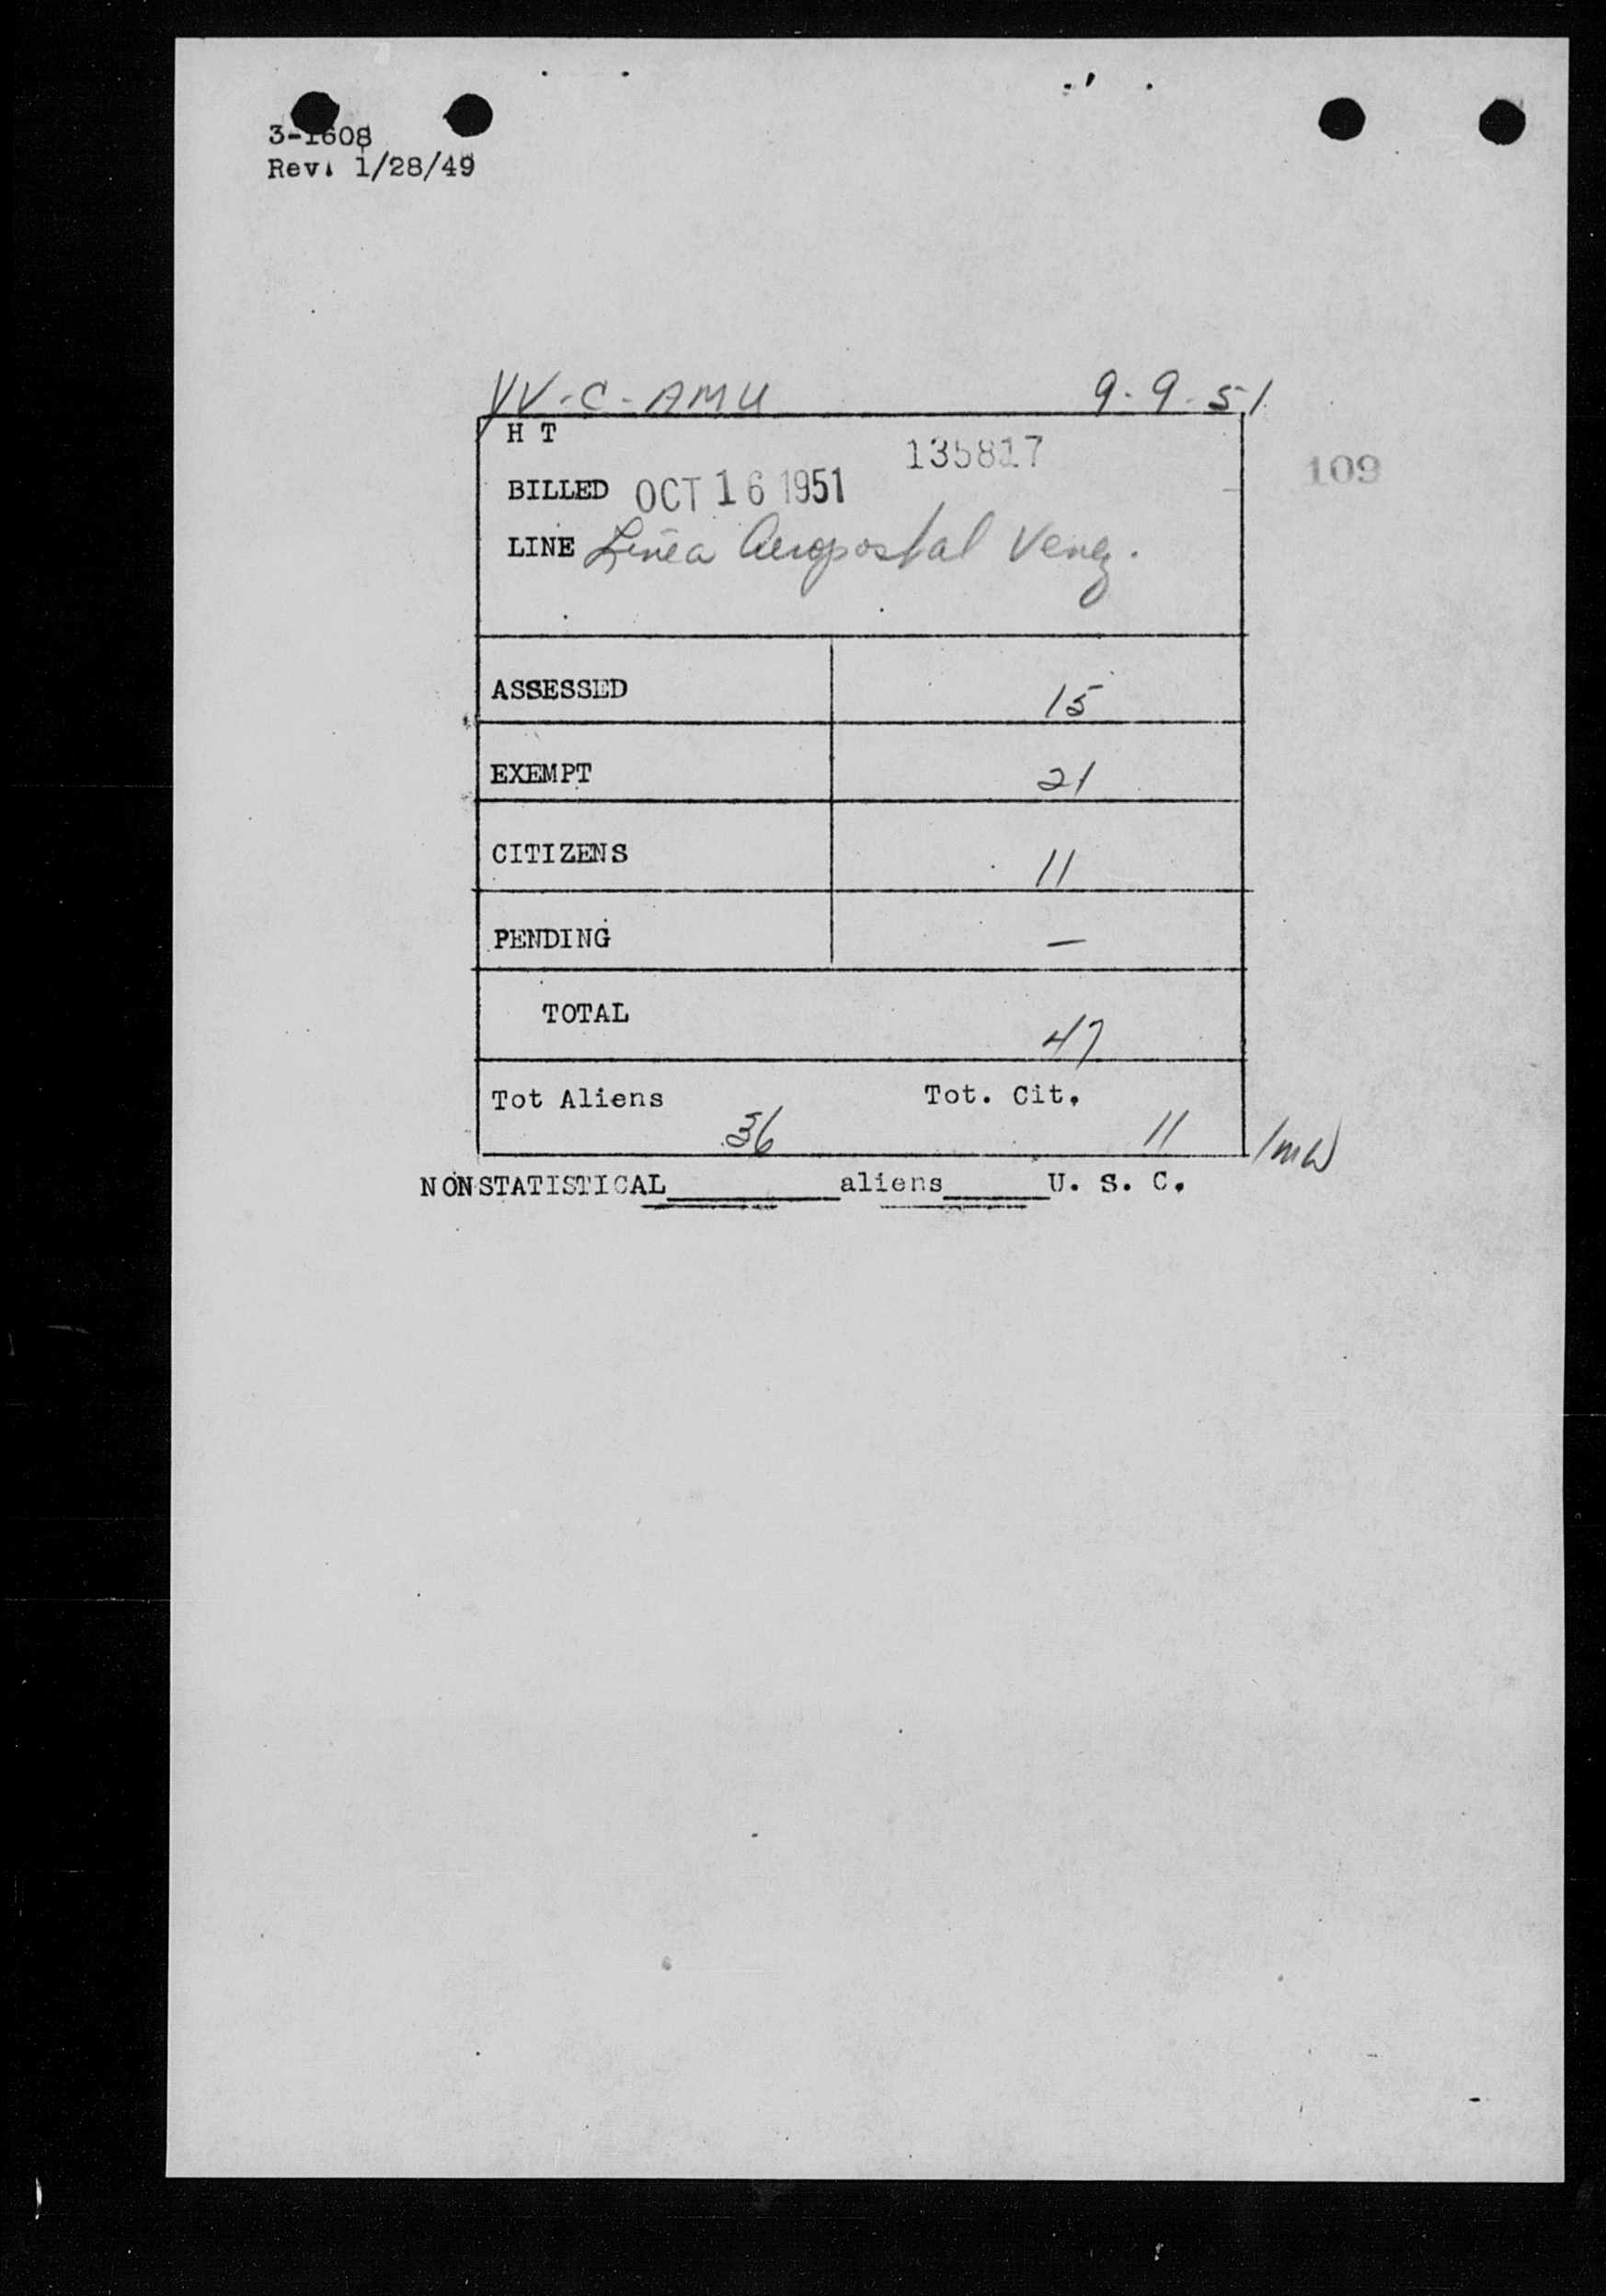 3-1608
Rev. 1/28/49
YV-C-AMU 9-9-51
H T
135817
109
BILLED OCT 16 1951
LINE Linea Aeropostal Venez.
ASSESSED 15
EXEMPT 21
CITIZENS 11
PENDING —
TOTAL 47
Tot Aliens 36 Tot. Cit. 11
NONSTATISTICAL aliens U. S. C.